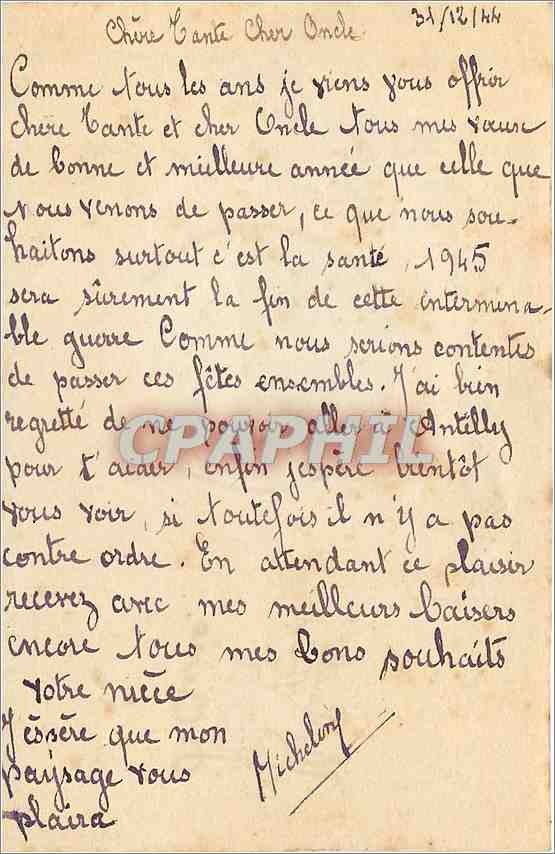 31/12/44
Chère Tante Cher Oncle.
Comme tous les ans je viens vous offrir
chere Tante et cher Oncle tous mes vœux
de bonne et meilleure année que celle que
nous venons de passer, ce que nous sou-
haitons surtout c'est la santé, 1945
sera sûrement la fin de cette intermina-
ble guerre Comme nous serions contentes
de passer ces fêtes ensembles. J'ai bien
regretté de ne pouvoir aller à Antilly
pour t'aider, enfin j'espère bientôt
vous voir, si toutefois il n'y a pas
contre ordre. En attendant ce plaisir
recevez avec mes meilleurs baisers
encore tous mes bons souhaits
votre nièce
J'éspère que mon
paysage vous
plaira
CPAPHIL